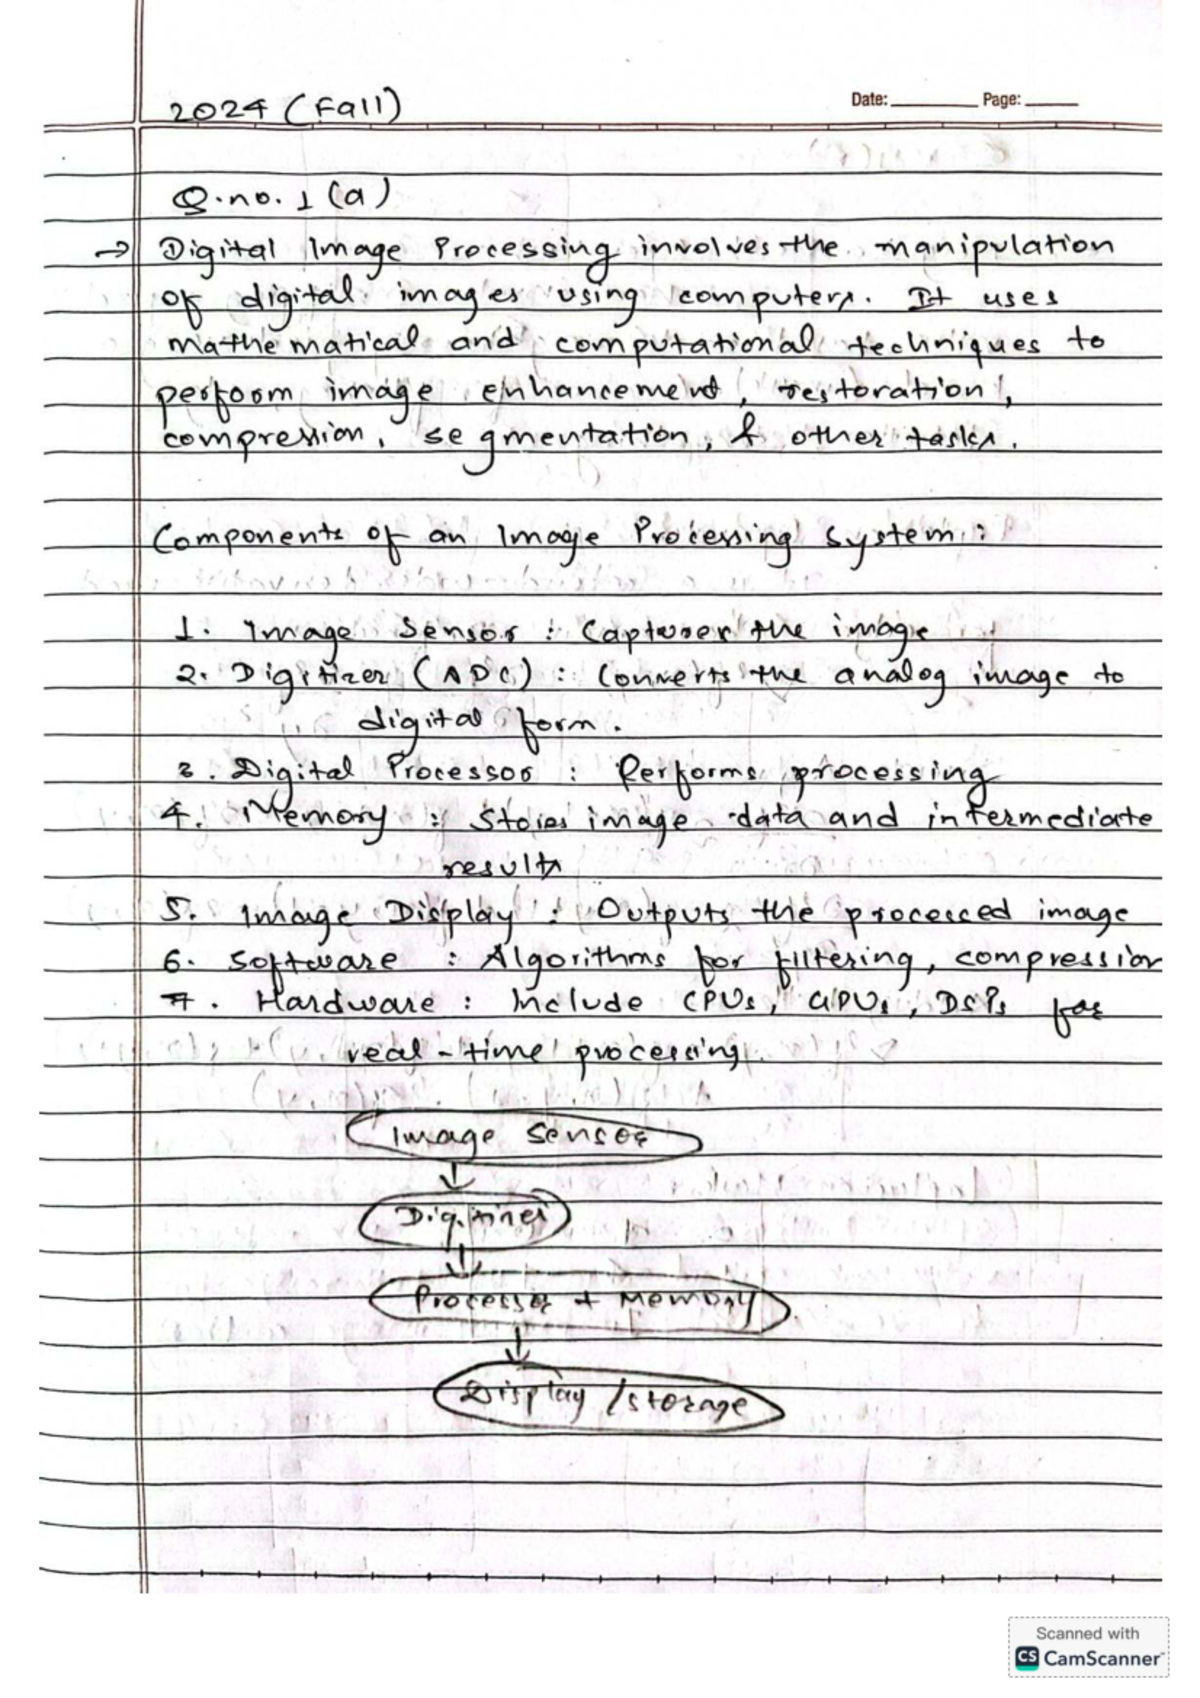 2024 (Fall)
Date: Page:
Q.no. 1 (a)
→ Digital Image Processing involves the manipulation
of digital images using computers. It uses
mathematical and computational techniques to
perform image enhancement, restoration,
compression, segmentation, & other tasks.
Components of an Image Processing System:
1. Image Sensor : Captures the image
2. Digitizer (ADC) : Converts the analog image to
digital form.
3. Digital Processor : Performs processing
4. Memory : Stores image data and intermediate
results
5. Image Display : Outputs the processed image
6. Software : Algorithms for filtering, compression
7. Hardware : Include CPUs, GPUs, DSPs for
real-time processing.
Image Sensor
Digitizer
Processor + Memory
Display / storage
Scanned with
CS CamScanner